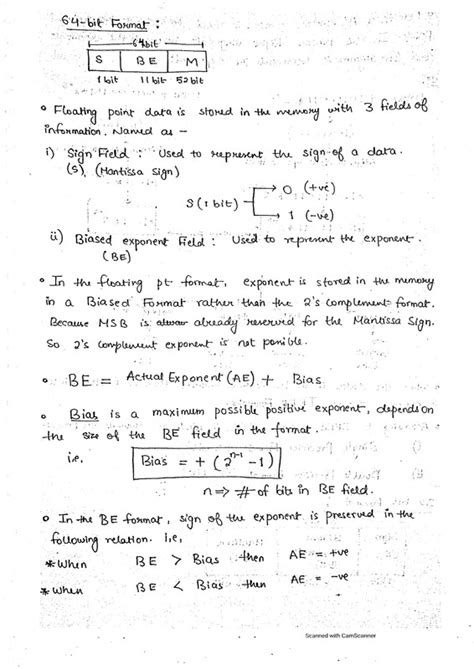 64-bit Format :
64bit
S BE M
1 bit 11 bit 52 bit
Floating point data is stored in the memory with 3 fields of
information. Named as -
i) Sign Field : Used to represent the sign of a data.
(S), (Mantissa Sign)
S (1 bit) 0 (+ve)
1 (-ve)
ii) Biased exponent Field : Used to represent the exponent.
(BE)
In the floating pt format, exponent is stored in the memory
in a Biased Format rather than the 2's complement format.
Because MSB is already reserved for the Mantissa Sign.
So 2's complement exponent is not possible.
BE = Actual Exponent (AE) + Bias
Bias is a maximum possible positive exponent, depends on
the size of the BE field in the format.
i.e. Bias = + (2^{n-1} - 1)
n => # of bits in BE field.
In the BE format, sign of the exponent is preserved in the
following relation. i.e,
*When BE > Bias then AE = +ve
*When BE < Bias then AE = -ve
Scanned with CamScanner